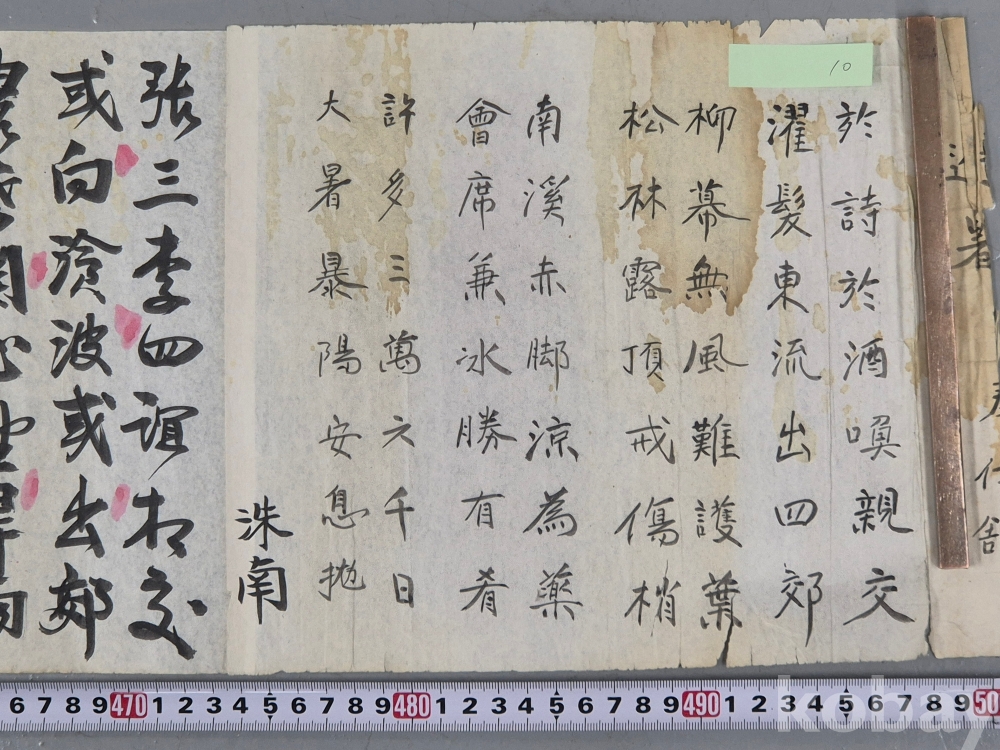 10
於詩於酒喚親交
濯髮東流出四郊
柳幕無風難護葉
松林露頂戒傷梢
南溪赤脚涼為藥
會席兼氷勝有肴
許多三萬六千日
大暑暴陽安息抛
洙南
張三李四誼相交
或向滄波或出郊
6 7 8 9 470 1 2 3 4 5 6 7 8 9 480 1 2 3 4 5 6 7 8 9 490 1 2 3 4 5 6 7 8 9 50
kobay